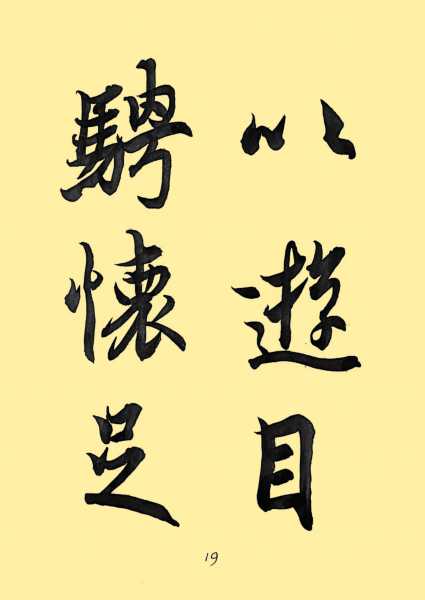 以遊目
騁懷足
19